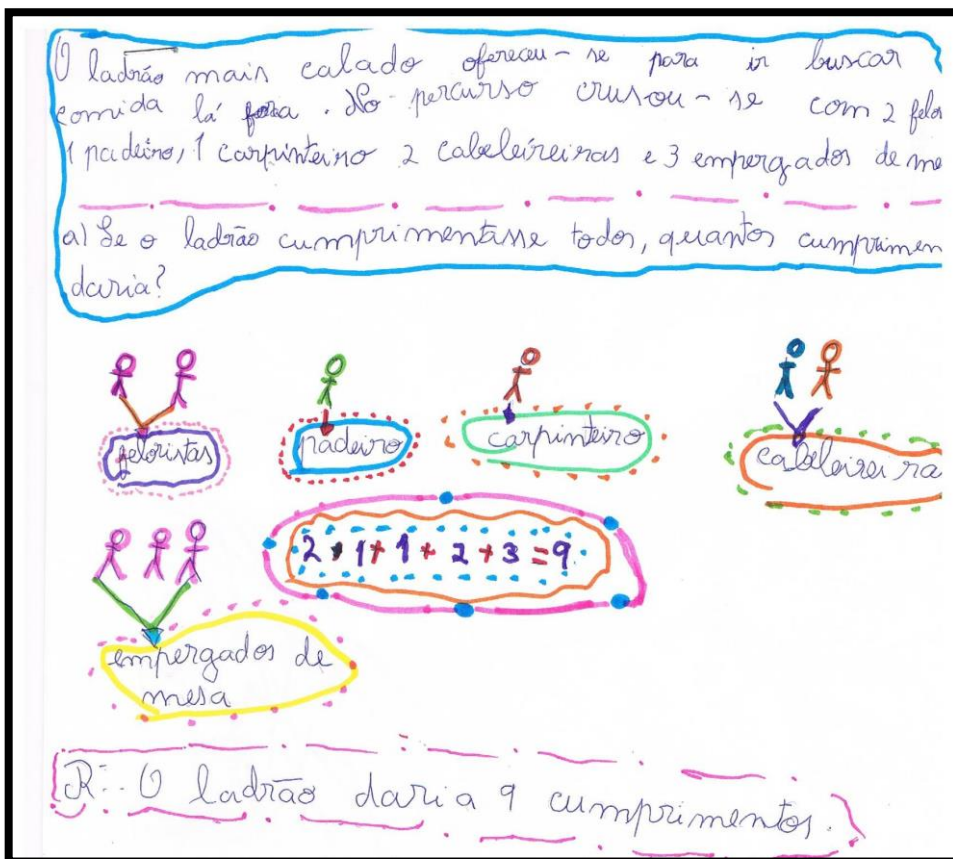 O ladrão mais calado ofereceu-se para ir buscar
comida lá fora. No percurso crusou-se com 2 felor
1 padeiro, 1 carpinteiro 2 cabeleireiras e 3 empergados de me
a) Se o ladrão cumprimentasse todos, quantos cumprimen
daria?
feloristas
padeiro
carpinteiro
cabeleireira
2+1+1+2+3=9
empergados de
mesa
R:. O ladrão daria 9 cumprimentos.